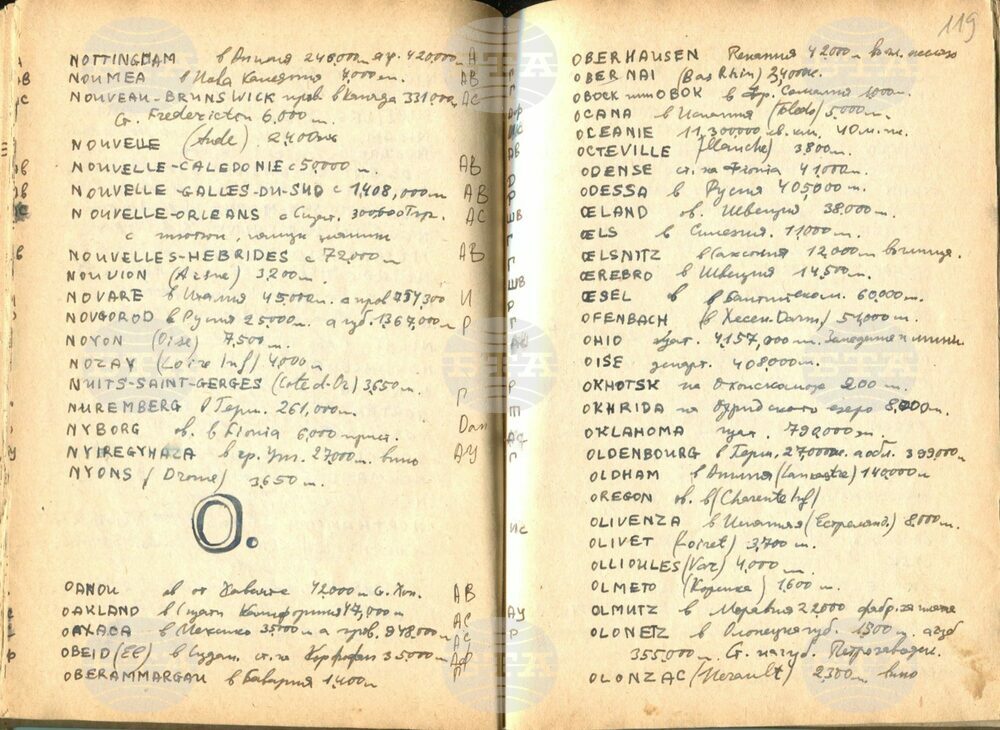 119
NOTTINGHAM в Англия 240,000 а гр. 420,000 А
NOUMEA в Нова Каледония 7,000 ж. АВ
NOUVEAU-BRUNSWICK пров. в Канада 331,000 АС
Ст. Fredericton 6,000 ж.
NOUVELLE (Aude) 2,400 ж
NOUVELLE-CALEDONIE с 50,000 ж АВ
NOUVELLE-GALLES-DU-SUD с 1,408,000 ж АВ
NOUVELLE-ORLEANS с Сщат. 300000 АС
с памук
NOUVELLES-HEBRIDES с 72,000 ж АВ
NOUVION (Aisne) 3,200 ж
NOVARE в Италия 45,000 ж. а пров 754,300 И
NOVGOROD в Русия 25,000 ж. а губ. 1367,000 ж Р
NOYON (Oise) 7,500 ж.
NOZAY (Loire Inf) 4,000 ж.
NUITS-SAINT-GERGES (Cote d-Or) 3,650 ж.
NUREMBERG в Герм. 261,000 ж. Г
NYBORG ов. в Fionia 6,000 прист. Dan
NYIREGYHAZA в гр. Унг. 27,000 ж. вино АУ
NYONS (Drome) 3,650 ж.
O.
OAHOU ов от Хавайте 42000 ж G. Хон. АВ
OAKLAND в Сщати Калифорния 47,000 ж АС
OAXACA в Мексико 35,000 ж а пров. 948,000 ж АС
OBEID (El) в Судан. ст. на Кордофан 35000 ж АФ
OBERAMMERGAU в Бавария 1,400 ж Г
OBERHAUSEN Ренания 42000 ж
OBERNAI (Bas Rhin) 3,400 ж.
OBOCK или OBOK в Фр. Сомалия 1000 ж.
OCANA в Испания (Toledo) 5,000 ж.
OCEANIE 11,300,000 кв. км,
OCTEVILLE (Manche) 3,800 ж.
ODENSE ст. на Фiония 41,000 ж.
ODESSA в Русия 405,000 ж.
ŒLAND ов. Швеция 38,000 ж.
ŒLS в Силезия. 11,000 ж.
ŒLSNITZ в Саксония 12,000 ж
ŒREBRO в Швеция 14,500 ж.
ŒSEL в Балтийском. 60,000 ж.
OFENBACH (в Хесен. Darm) 51,000 ж.
OHIO щат. 4,157,000 ж.
OISE департ. 408,000 ж.
OKHOTSK на Охонското 200 ж.
OKHRIDA на Охридското езеро 8,000 ж.
OKLAHOMA щат. 790,000 ж.
OLDENBOURG в Герм. 27,000 ж. а обл. 399,000 ж
OLDHAM в Англия (Lancastre) 140,000 ж
OREGON ов. в (Charente Inf)
OLIVENZA в Испания (Естремад.) 8,000 ж.
OLIVET (Loiret) 3,700 ж.
OLLIOULES (Var) 4,000 ж.
OLMETO (Корсика) 1,600 ж.
OLMUTZ в Моравия 22000 фабр.
OLONETZ в Олонецка губ. 1500 ж. а губ
355,000 ж. Ст. на губ. Петрозаводск.
OLONZAC (Herault) 2,300 ж вино